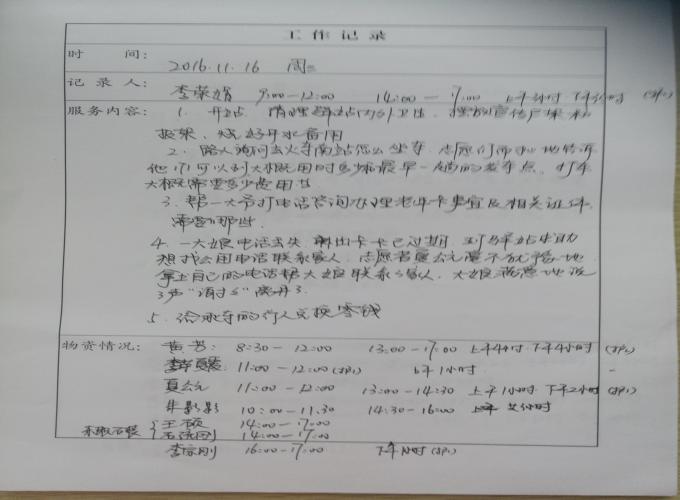 工作记录
时 间: 2016.11.16 周三
记录人: 李荣娟 9:00—12:00 14:00—17:00 上午3小时 下午3小时
服务内容: 1. 开站 清理驿站内外卫生, 宣传户
报架, 烧好开水备用
2. 路人询问去火车南站怎么坐车, 志愿们
他们可以 大概用时多少和最早一趟的发车点, 打车
大概需要多少费用
3. 帮一大爷打电话咨询办理老年卡事宜及相关证件
需要哪些.
4. 一大娘电话丢失 卡已过期, 到驿站求助
想找公用电话联系家人, 志愿者 毫不犹豫地
拿出自己的电话帮大娘联系家人, 大娘满意地说
了声"谢谢"离开了.
5. 给 车的行人兑换零钱
物资情况: 黄芳: 8:30—12:00 13:00—17:00 上午4小时 下午4小时
11:00—12:00 上午1小时
11:00—12:00 13:00—14:30 上午1小时 下午2小时
朱影影 10:00—11:30 14:30—16:00 小时
王硕 14:00—17:00
14:00—17:00
李 刚 16:00—17:00 下午1小时